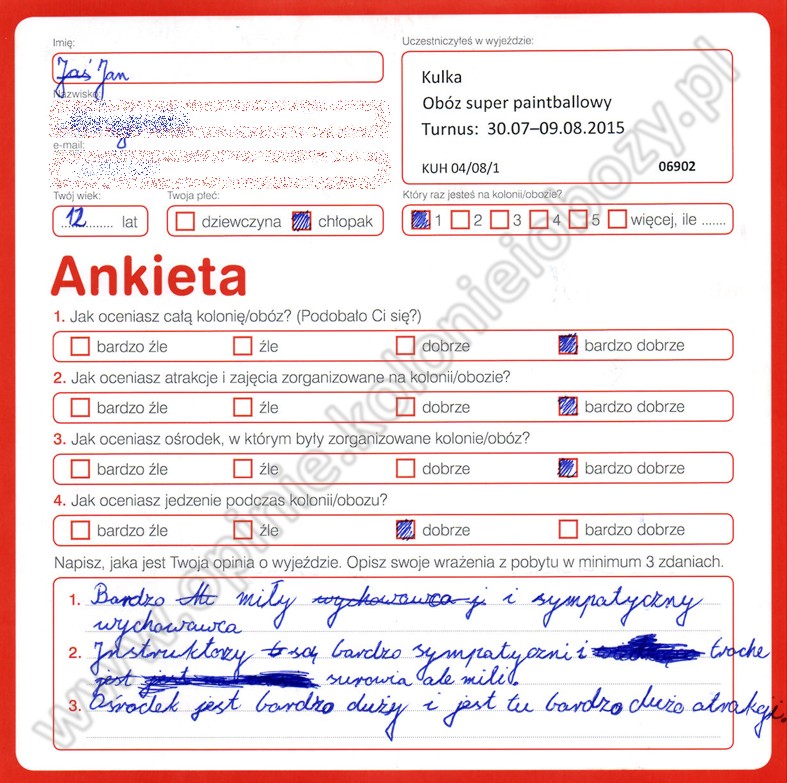 Imię:
Jaś Jan
Uczestniczyłeś w wyjeździe:
Kulka
Obóz super paintballowy
Turnus: 30.07–09.08.2015
KUH 04/08/1 06902
Nazwisko:
e-mail:
Twój wiek:
12 lat
Twoja płeć:
dziewczyna chłopak
Który raz jesteś na kolonii/obozie?
1 2 3 4 5 więcej, ile .......
Ankieta
1. Jak oceniasz całą kolonię/obóz? (Podobało Ci się?)
bardzo źle źle dobrze bardzo dobrze
2. Jak oceniasz atrakcje i zajęcia zorganizowane na kolonii/obozie?
bardzo źle źle dobrze bardzo dobrze
3. Jak oceniasz ośrodek, w którym były zorganizowane kolonie/obóz?
bardzo źle źle dobrze bardzo dobrze
4. Jak oceniasz jedzenie podczas kolonii/obozu?
bardzo źle źle dobrze bardzo dobrze
Napisz, jaka jest Twoja opinia o wyjeździe. Opisz swoje wrażenia z pobytu w minimum 3 zdaniach.
1. Bardzo miły wychowawca j i sympatyczny
wychowawca
2. Instruktorzy są bardzo sympatyczni i troche
jest surowia ale mili.
3. Ośrodek jest bardzo duży i jest tu bardzo dużo atrakcji.
www.opinie.kolonieiobozy.pl